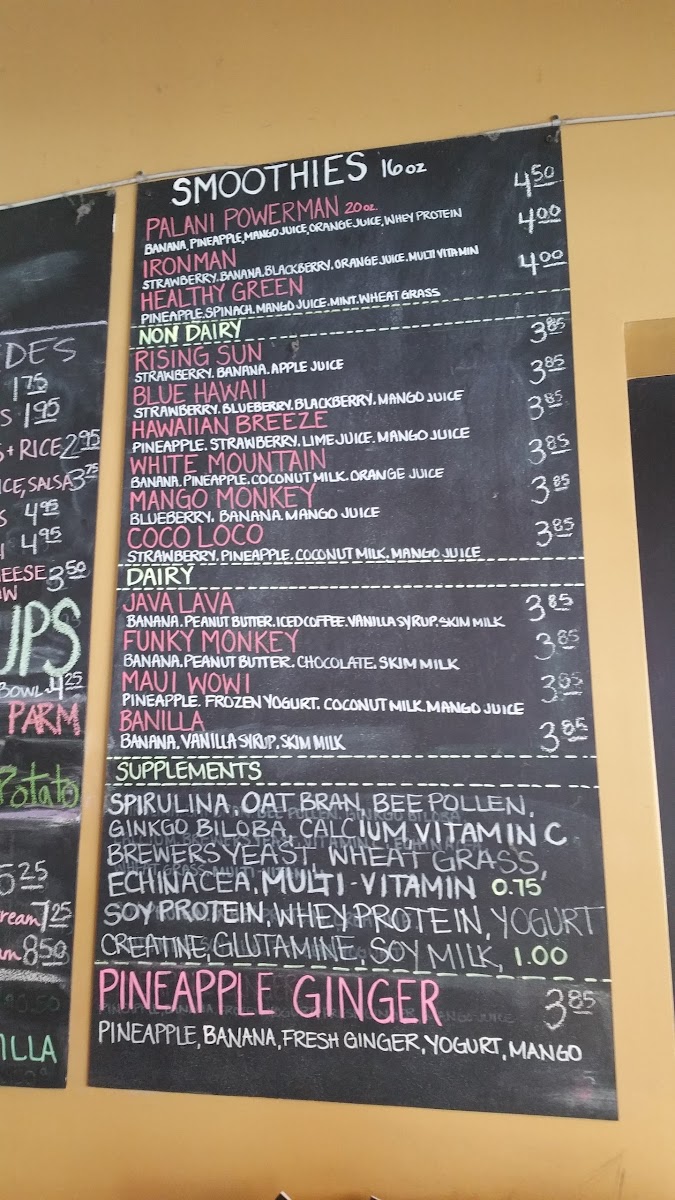 DES
1 75
S 1 95
+ RICE 2 95
ICE, SALSA 3 75
S 4 95
4 95
EESE 3 50
OW
UPS
BOWL 4 25
PARM
Potato
5 25
ream 7 25
am 8 50
ILLA
SMOOTHIES 16 oz
PALANI POWERMAN 20 oz. 4 50
BANANA, PINEAPPLE, MANGO JUICE, ORANGE JUICE, WHEY PROTEIN
IRONMAN 4 00
STRAWBERRY. BANANA. BLACKBERRY. ORANGE JUICE. MULTI VITAMIN
HEALTHY GREEN 4 00
PINEAPPLE. SPINACH. MANGO JUICE. MINT. WHEAT GRASS
NON DAIRY
RISING SUN 3 85
STRAWBERRY. BANANA. APPLE JUICE
BLUE HAWAII 3 85
STRAWBERRY. BLUEBERRY. BLACKBERRY. MANGO JUICE
HAWAIIAN BREEZE 3 85
PINEAPPLE. STRAWBERRY. LIME JUICE. MANGO JUICE
WHITE MOUNTAIN 3 85
BANANA. PINEAPPLE. COCONUT MILK. ORANGE JUICE
MANGO MONKEY 3 85
BLUEBERRY. BANANA. MANGO JUICE
COCO LOCO 3 85
STRAWBERRY. PINEAPPLE. COCONUT MILK. MANGO JUICE
DAIRY
JAVA LAVA 3 85
BANANA. PEANUT BUTTER. ICED COFFEE. VANILLA SYRUP. SKIM MILK
FUNKY MONKEY 3 85
BANANA. PEANUT BUTTER. CHOCOLATE. SKIM MILK
MAUI WOWI 3 85
PINEAPPLE. FROZEN YOGURT. COCONUT MILK. MANGO JUICE
BANILLA 3 85
BANANA. VANILLA SYRUP. SKIM MILK
SUPPLEMENTS
SPIRULINA, OAT BRAN, BEE POLLEN,
GINKGO BILOBA, CALCIUM, VITAMIN C
BREWERS YEAST, WHEAT GRASS,
ECHINACEA, MULTI-VITAMIN 0.75
SOY PROTEIN, WHEY PROTEIN, YOGURT
CREATINE, GLUTAMINE, SOY MILK, 1.00
PINEAPPLE GINGER 3 85
PINEAPPLE, BANANA, FRESH GINGER, YOGURT, MANGO